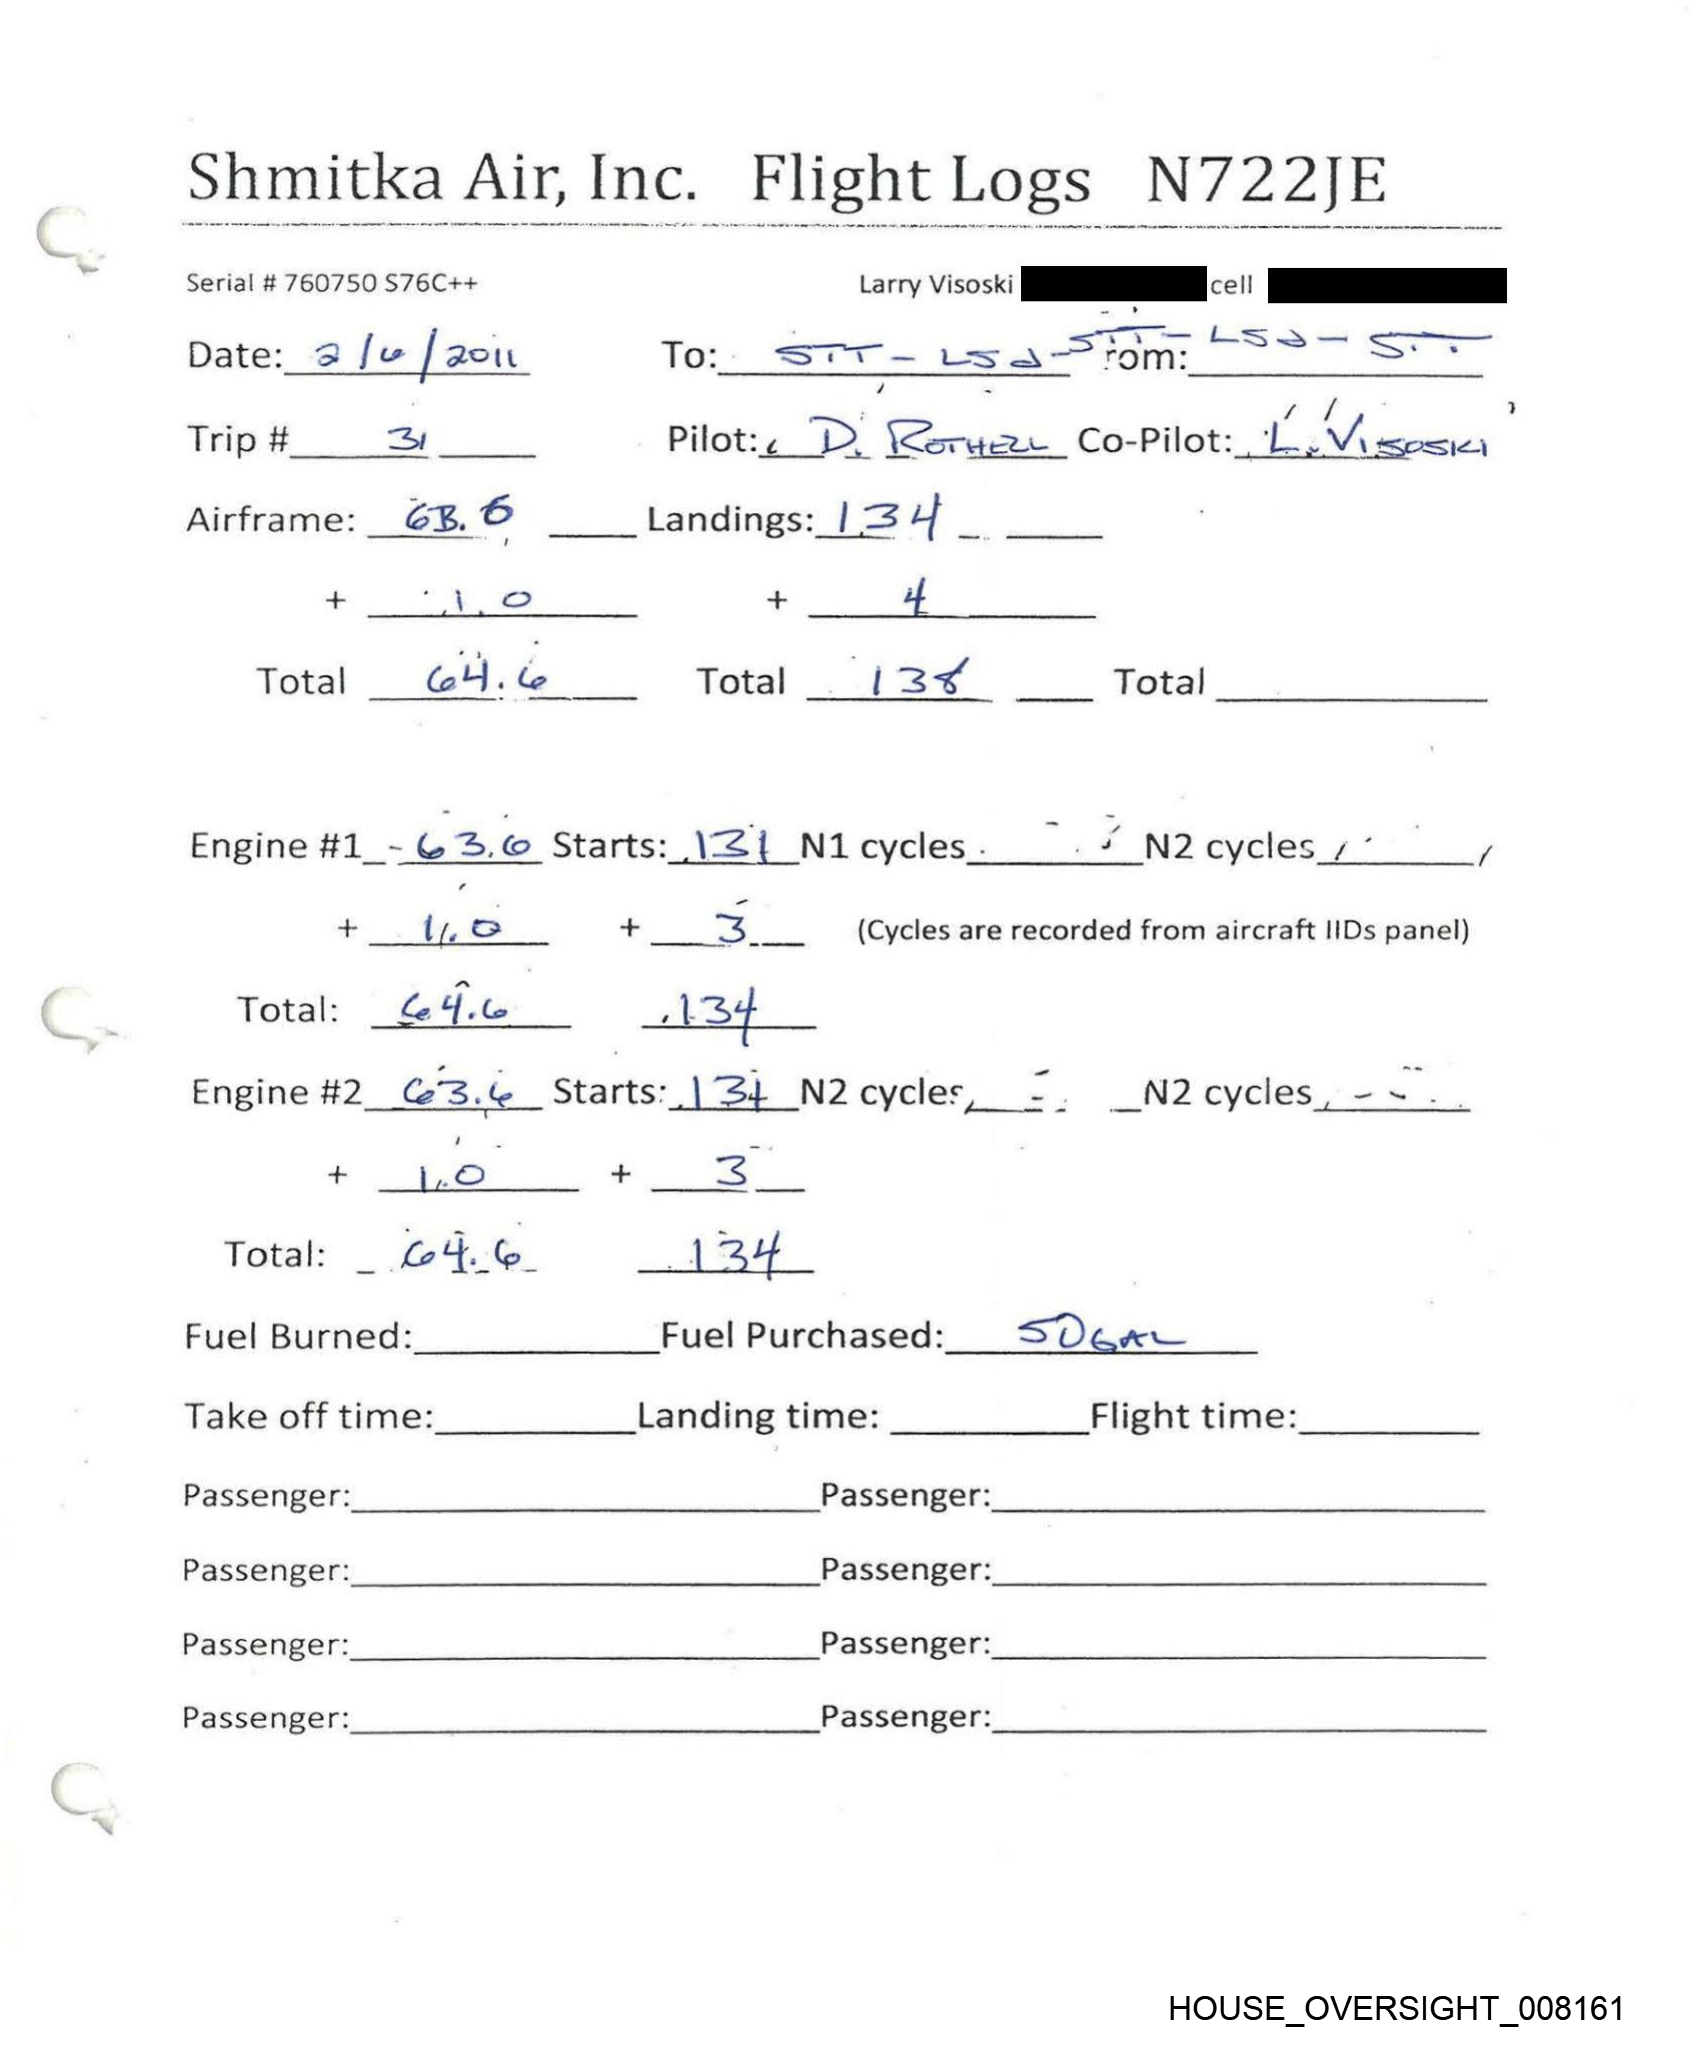 Shmitka Air, Inc. Flight Logs N722JE
Serial # 760750 S76C++ Larry Visoski cell
Date: 2/6/2011 To: STT - LSJ - STT - LSJ - STT rom:
Trip # 31 Pilot: D. ROTHELL Co-Pilot: L. VISOSKI
Airframe: 63.6 Landings: 134
+ 1.0 + 4
Total 64.6 Total 138 Total
Engine #1 63.6 Starts: 131 N1 cycles N2 cycles
+ 1.0 + 3 (Cycles are recorded from aircraft IIDs panel)
Total: 64.6 134
Engine #2 63.6 Starts: 131 N2 cycles N2 cycles
+ 1.0 + 3
Total: 64.6 134
Fuel Burned: Fuel Purchased: 50 GAL
Take off time: Landing time: Flight time:
Passenger: Passenger:
Passenger: Passenger:
Passenger: Passenger:
Passenger: Passenger:
HOUSE_OVERSIGHT_008161